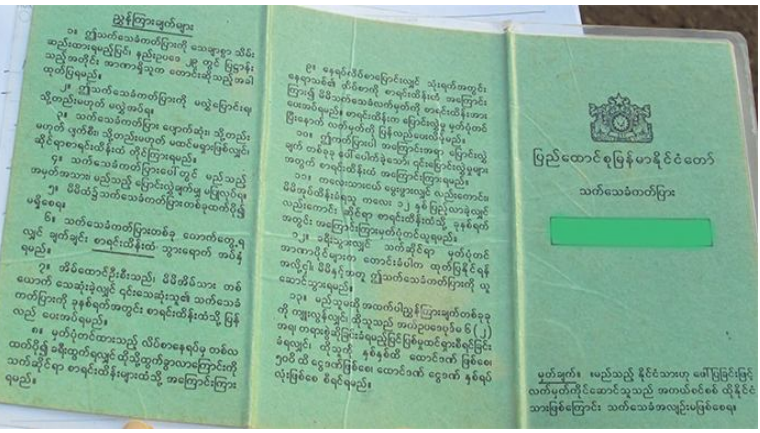 ညွှန်ကြားချက်များ
၁။ ဤသက်သေခံကတ်ပြားကို သေချာစွာ သိမ်း
ဆည်းထားရမည့်ပြင်၊ နည်းဥပဒေ ၂၉ တွင် ပြဋ္ဌာန်း
သည့်အတိုင်း အာဏာရှိသူက တောင်းဆိုသည့်အခါ
ထုတ်ပြရမည်။
၂။ ဤသက်သေခံကတ်ပြားကို မလွှဲပြောင်းရ၊
သို့တည်းမဟုတ် မလွှဲအပ်ရ။
၃။ သက်သေခံကတ်ပြား ပျောက်ဆုံး၊ သို့တည်း
မဟုတ် ပျက်စီး၊ သို့တည်းမဟုတ် မထင်မရှားဖြစ်လျှင်၊
ဆိုင်ရာစာရင်းထိန်းထံ တိုင်ကြားရမည်။
၄။ သက်သေခံကတ်ပြားပေါ်တွင် မည်သည့်
အမှတ်အသား၊ မည်သည့် ပြောင်းလွှဲချက်မျှ မပြုလုပ်ရ။
၅။ မိမိထံ၌သက်သေခံကတ်ပြားတစ်ခုထက်ပို၍
မရှိစေရ။
၆။ သက်သေခံကတ်ပြားတစ်ခု ယောက်တွေ့ရ
လျှင် ချက်ချင်း စာရင်းထိန်းထံ သွားရောက် အပ်နှံ
ရမည်။
၇။ အိမ်ထောင်ဦးစီးသည်၊ မိမိအိမ်သား တစ်
ယောက် သေဆုံးခဲ့လျှင် ၎င်းသေဆုံးသူ၏ သက်သေခံ
ကတ်ပြားကို ခုနစ်ရက်အတွင်း စာရင်းထိန်းထံသို့ ပြန်
လည် ပေးအပ်ရမည်။
၈။ မှတ်ပုံတင်ထားသည့် လိပ်စာနေရပ်မှ တစ်လ
ထတ်ပို၍ ခရီးထွက်ရလျှင် ထိုသို့ထွက်ခွာလာကြောင်းကို
သက်ဆိုင်ရာ စာရင်းထိန်းများထံသို့ အကြောင်းကြား
ရမည်။
၉။ နေရပ်လိပ်စာပြောင်းလျှင် သုံးရက်အတွင်း
နေရာသစ်၏ လိပ်စာကို စာရင်းထိန်းထံ အကြောင်း
ကြား၍ မိမိသက်သေခံလက်မှတ်ကို စာရင်းထိန်းအား
ပေးအပ်ရမည်။ စာရင်းထိန်းက ပြောင်းလွှဲမှု မှတ်ပုံတင်
ပြီးနောက် လက်မှတ်ကို ပြန်လည်ပေးလိမ့်မည်။
၁၀။ ဤကတ်ပြားပါ အကြောင်းအရာ ပြောင်းလွဲ
ချက် တစ်စုံတစ်ခု ပေါ်ပေါက်ခဲ့သော်၊ ၎င်းပြောင်းလွှဲမှုများ
အတွက် စာရင်းထိန်းထံ အကြောင်းကြားရမည်။
၁၁။ ကလေးသားငယ် မွေးဖွားလျှင် လည်းကောင်း၊
မိမိအုပ်ထိန်းခံရသူ ကလေး ၁၂ နှစ် ပြည့်လာခဲ့လျှင်
လည်းကောင်း ဆိုင်ရာ စာရင်းထိန်းထံသို့ ခုနစ်ရက်
အတွင်း အကြောင်းကြားမှတ်ပုံတင်ယူရမည်။
၁၂။ ခရီးသွားလျှင် သက်ဆိုင်ရာ မှတ်ပုံတင်
အာဏာပိုင်များက တောင်းခံပါက ထုတ်ပြနိုင်ရန်
အလို့ငှါ၊ မိမိနှင့်အတူ ဤသက်သေခံကတ်ပြားကို ယူ
ဆောင်သွားရမည်။
၁၃။ မည်သူမဆို အထက်ပါညွှန်ကြားချက်တစ်ခုခု
ကို ကျူးလွန်လျှင်၊ ထိုသူသည် အယ်ဥပဒေပုဒ်မ ၆ (၂)
အရ၊ တရားစွဲဆိုခြင်းခံရမည့်ပြင်ပြစ်မှုထင်ရှားစီရင်ခြင်း
ခံရလျှင်၊ ထိုသူကို နှစ်နှစ်ထိ ထောင်ဒဏ် ဖြစ်စေ၊
၅၀၀ိ ထိ ငွေဒဏ်ဖြစ်စေ၊ ထောင်ဒဏ် ငွေဒဏ် နှစ်ရပ်
လုံးဖြစ်စေ စီရင်ရမည်။
ပြည်ထောင်စုမြန်မာနိုင်ငံတော်
သက်သေခံကတ်ပြား
မှတ်ချက်။ ။မည်သည့် နိုင်ငံသားဟု ဖော်ပြခြင်းဖြင့်
လက်မှတ်ကိုင်ဆောင်သူသည် အကယ်စင်စစ် ထိုနိုင်ငံ
သားဖြစ်ကြောင်း သက်သေခံအလျဉ်းမဖြစ်စေရ။